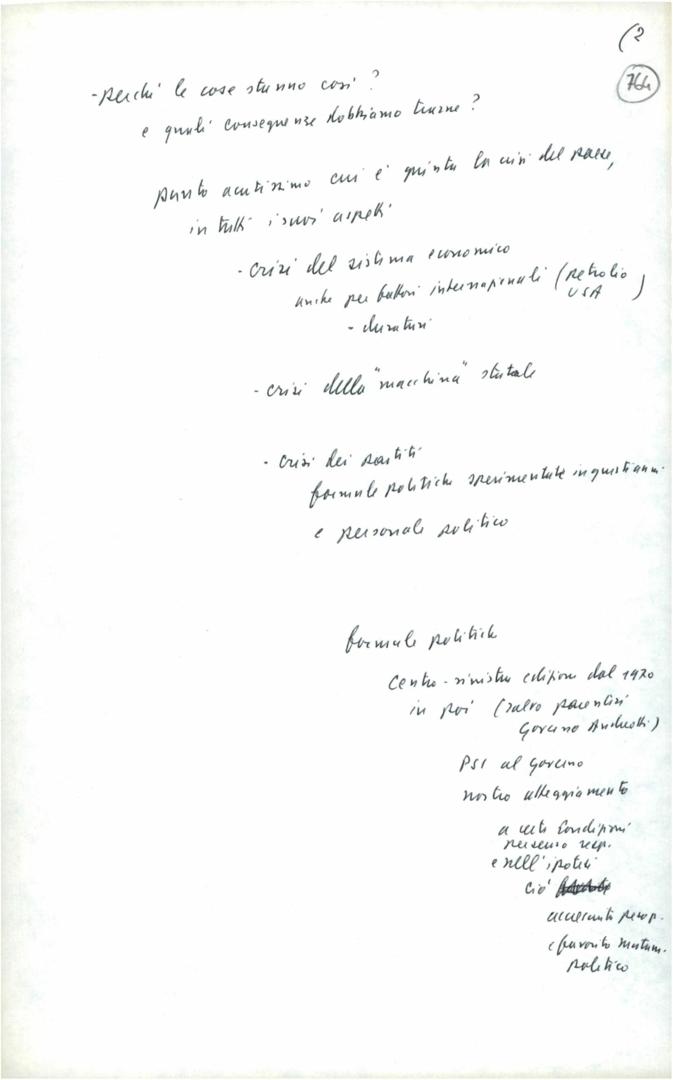 (2
764
- perché le cose stanno così?
e quali conseguenze dobbiamo trarne?
punto acutissimo cui è giunta la crisi del paese,
in tutti i suoi aspetti
- crisi del sistema economico
anche per fattori internazionali (petrolio
USA)
- duraturi
- crisi della "macchina" statale
- crisi dei partiti
formule politiche sperimentate in questi anni
e personale politico
formule politiche
Centro-sinistra edizione dal 1970
in poi (salvo parentesi
Governo Andreotti)
PSI al governo
nostro atteggiamento
a certe condizioni
e nell'ipotesi
ciò
politico